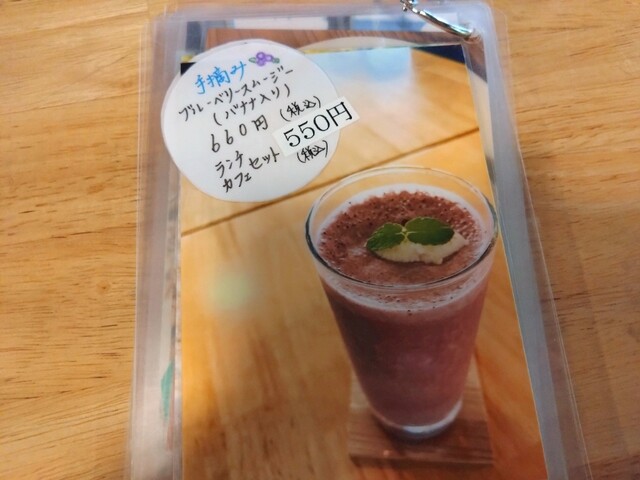 手摘み
ブルーベリースムージー
(バナナ入り)
660円 (税込)
ランチ
カフェ セット 550円
(税込)